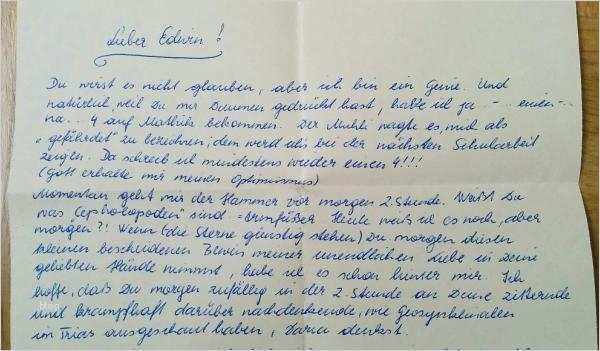 Lieber Edwin!
Du wirst es nicht glauben, aber ich bin ein Genie. Und
natürlich, weil Du mir Daumen gedrückt hast, habe ich ja -... einen ...
na... 4 auf Mathik bekommen. Der Muhli wagte es, mich als
"gefährdet" zu bezeichnen, dem werd ichs bei der nächsten Schularbeit
zeigen. Da schreib ich mindestens wieder einen 4!!!
(Gott erhalte mir meinen Optimismus)
Momentan geht mir der Hammer vor morgen 2. Stunde. Weißt Du
was Cephalopoden sind - Armfüßer. Heute weiß ich es noch, aber
morgen?! Wenn (die Sterne günstig stehen) Du morgen diesen
kleinen bescheidenen Beweis meiner unendlichen Liebe in Deine
geliebten Hände nimmst, habe ich es schon hinter mir. Ich
hoffe, daß Du morgen zufällig in der 2. Stunde an Deine zitternde
und krampfhaft darüber nachdenkende, wie Geosynklinalen
im Trias ausgeschaut haben, Daria denkst.